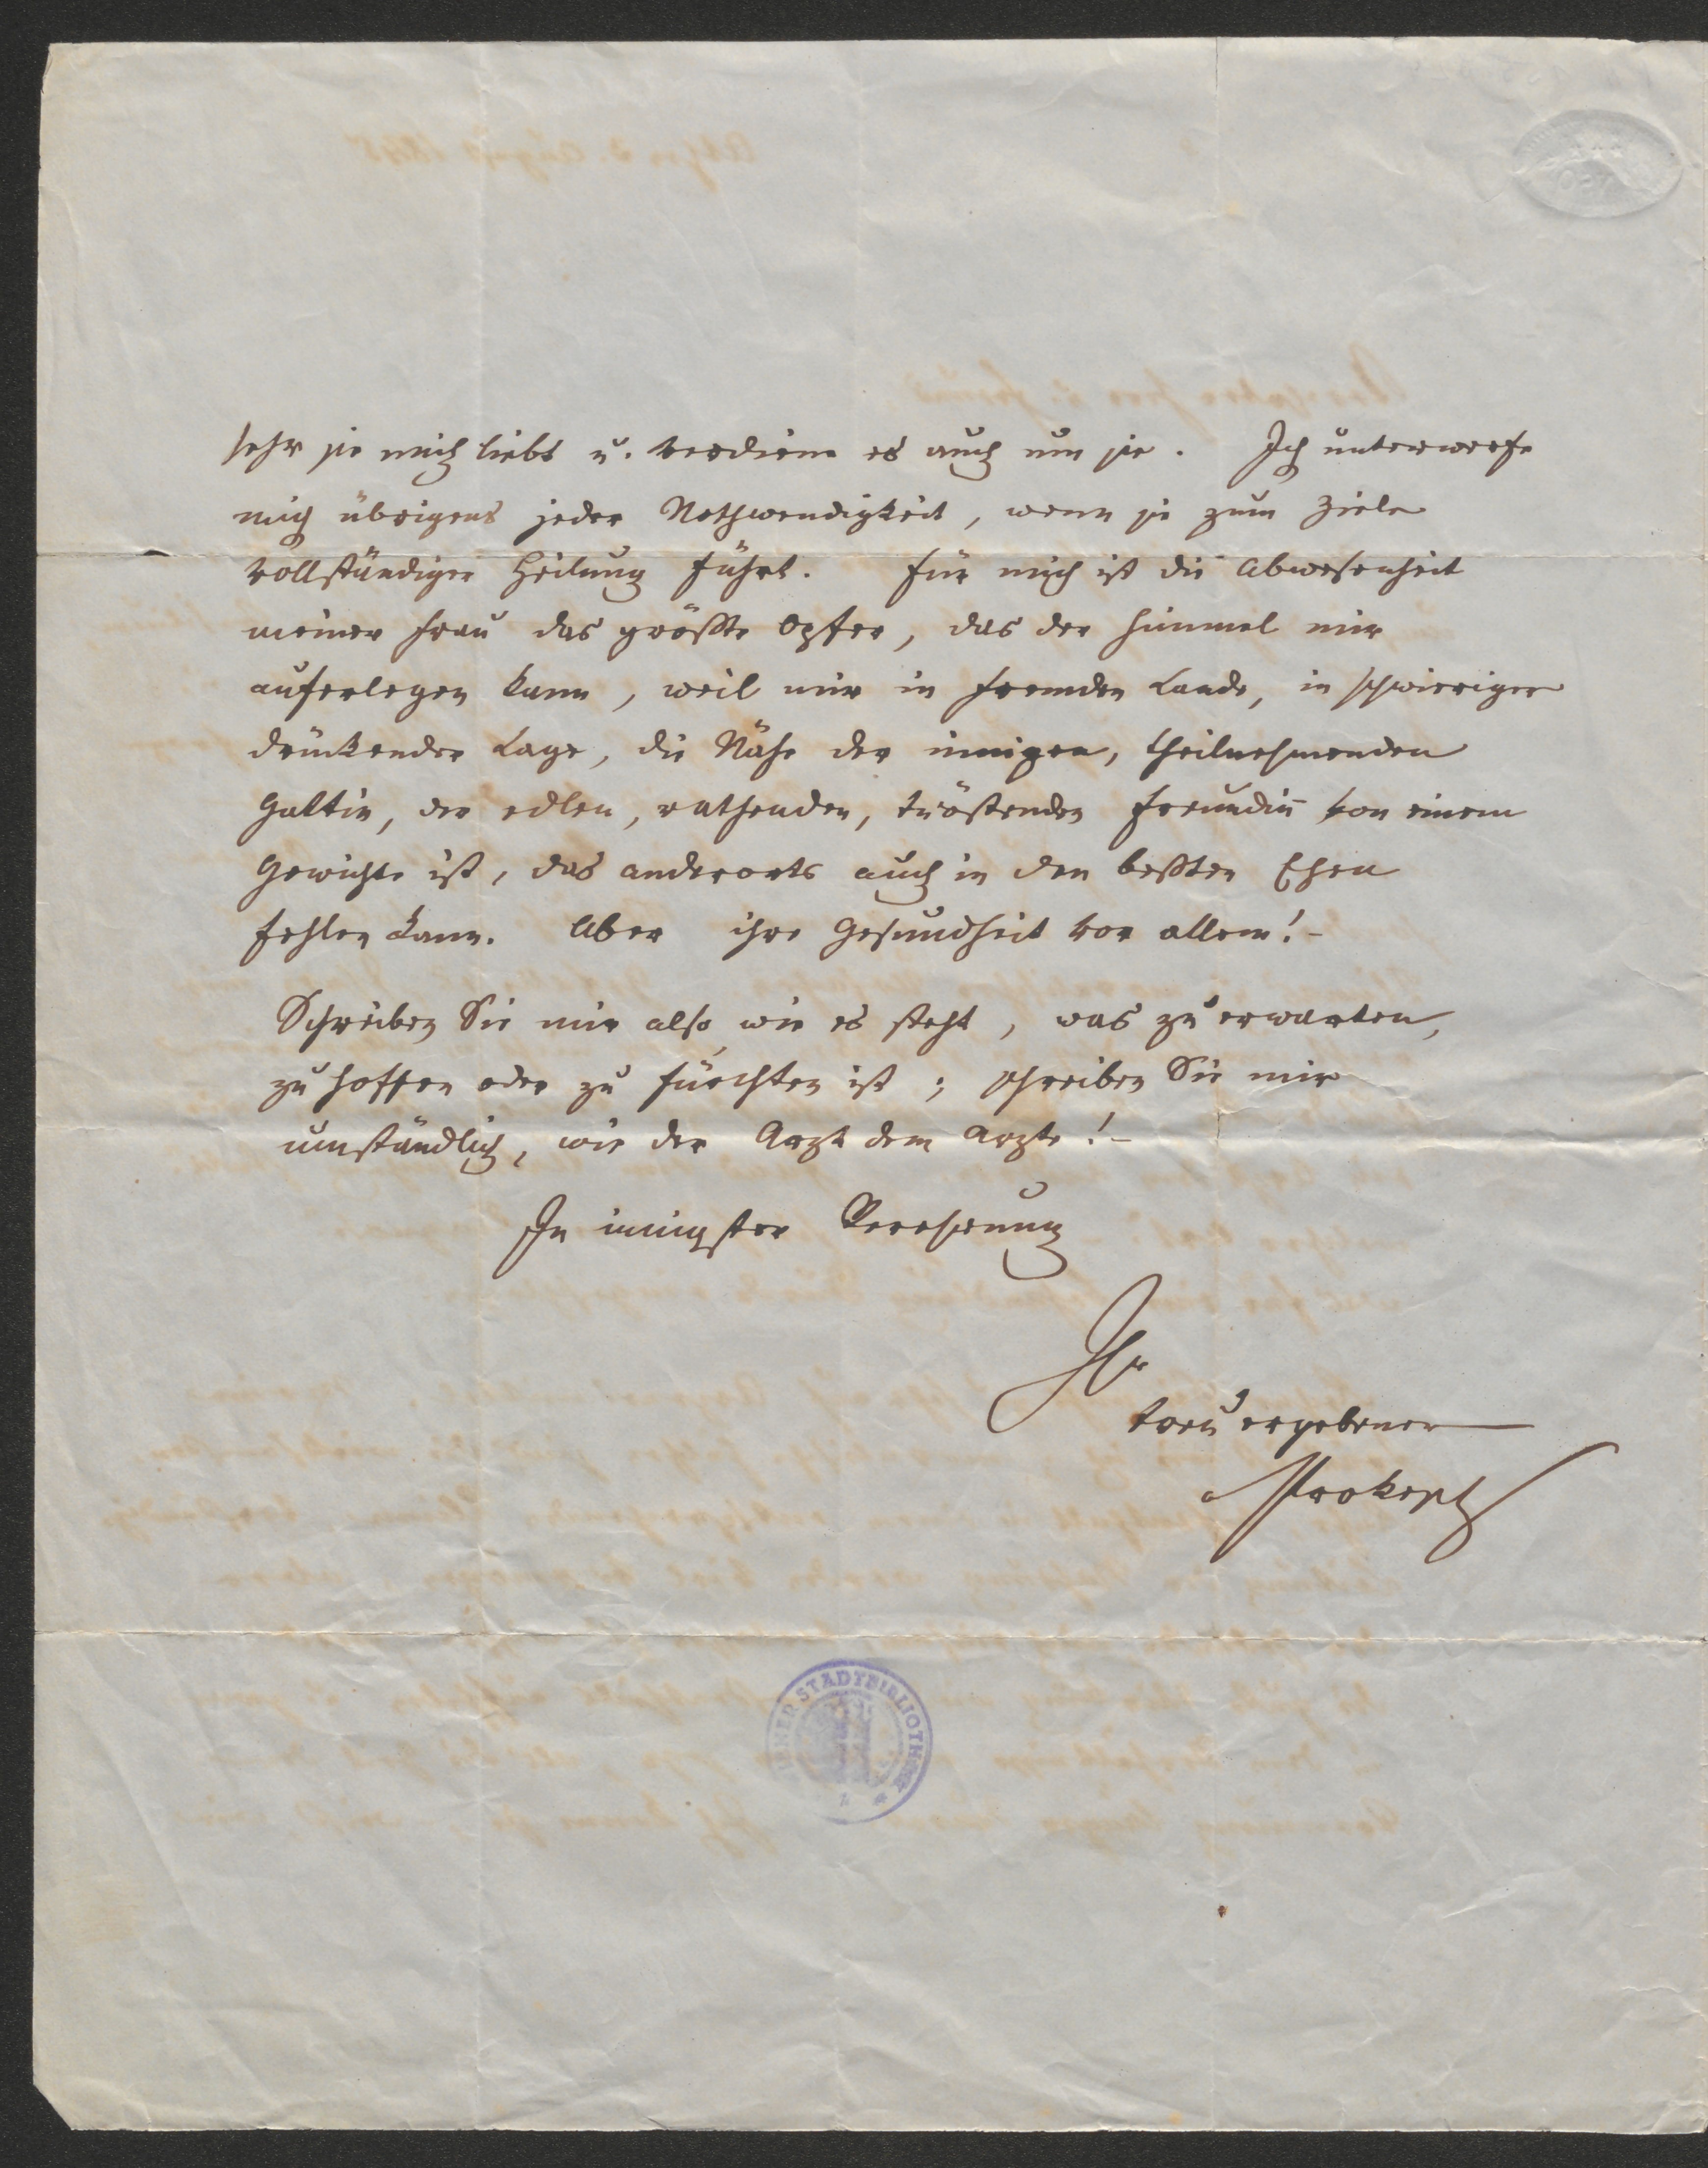 sehr sie mich liebt u. verdiene es auch um sie. Ich unterwerfe
mich übrigens jeder Nothwendigkeit, wenn sie zum Ziele
vollständiger Heilung führt. Für mich ist die Abwesenheit
meiner Frau das größte Opfer, das der Himmel mir
auferlegen kann, weil mir in fremden Lande, in schwieriger
drückender Lage, die Nähe der innigen, theilnehmenden
Gattin, der edlen, rathenden, tröstenden Freundin von einem
Gewichte ist, das anderorts auch in den beßten Ehen
fehlen kann. Aber ihre Gesundheit vor allem! –
Schreiben Sie mir also, wie es steht, was zu erwarten,
zu hoffen oder zu fürchten ist; schreiben Sie mir
umständlich, wie der Arzt dem Arzte! –
In innigster Verehrung
Ihr
treu ergebener
Prokesch
WIENER STADTBIBLIOTHEK